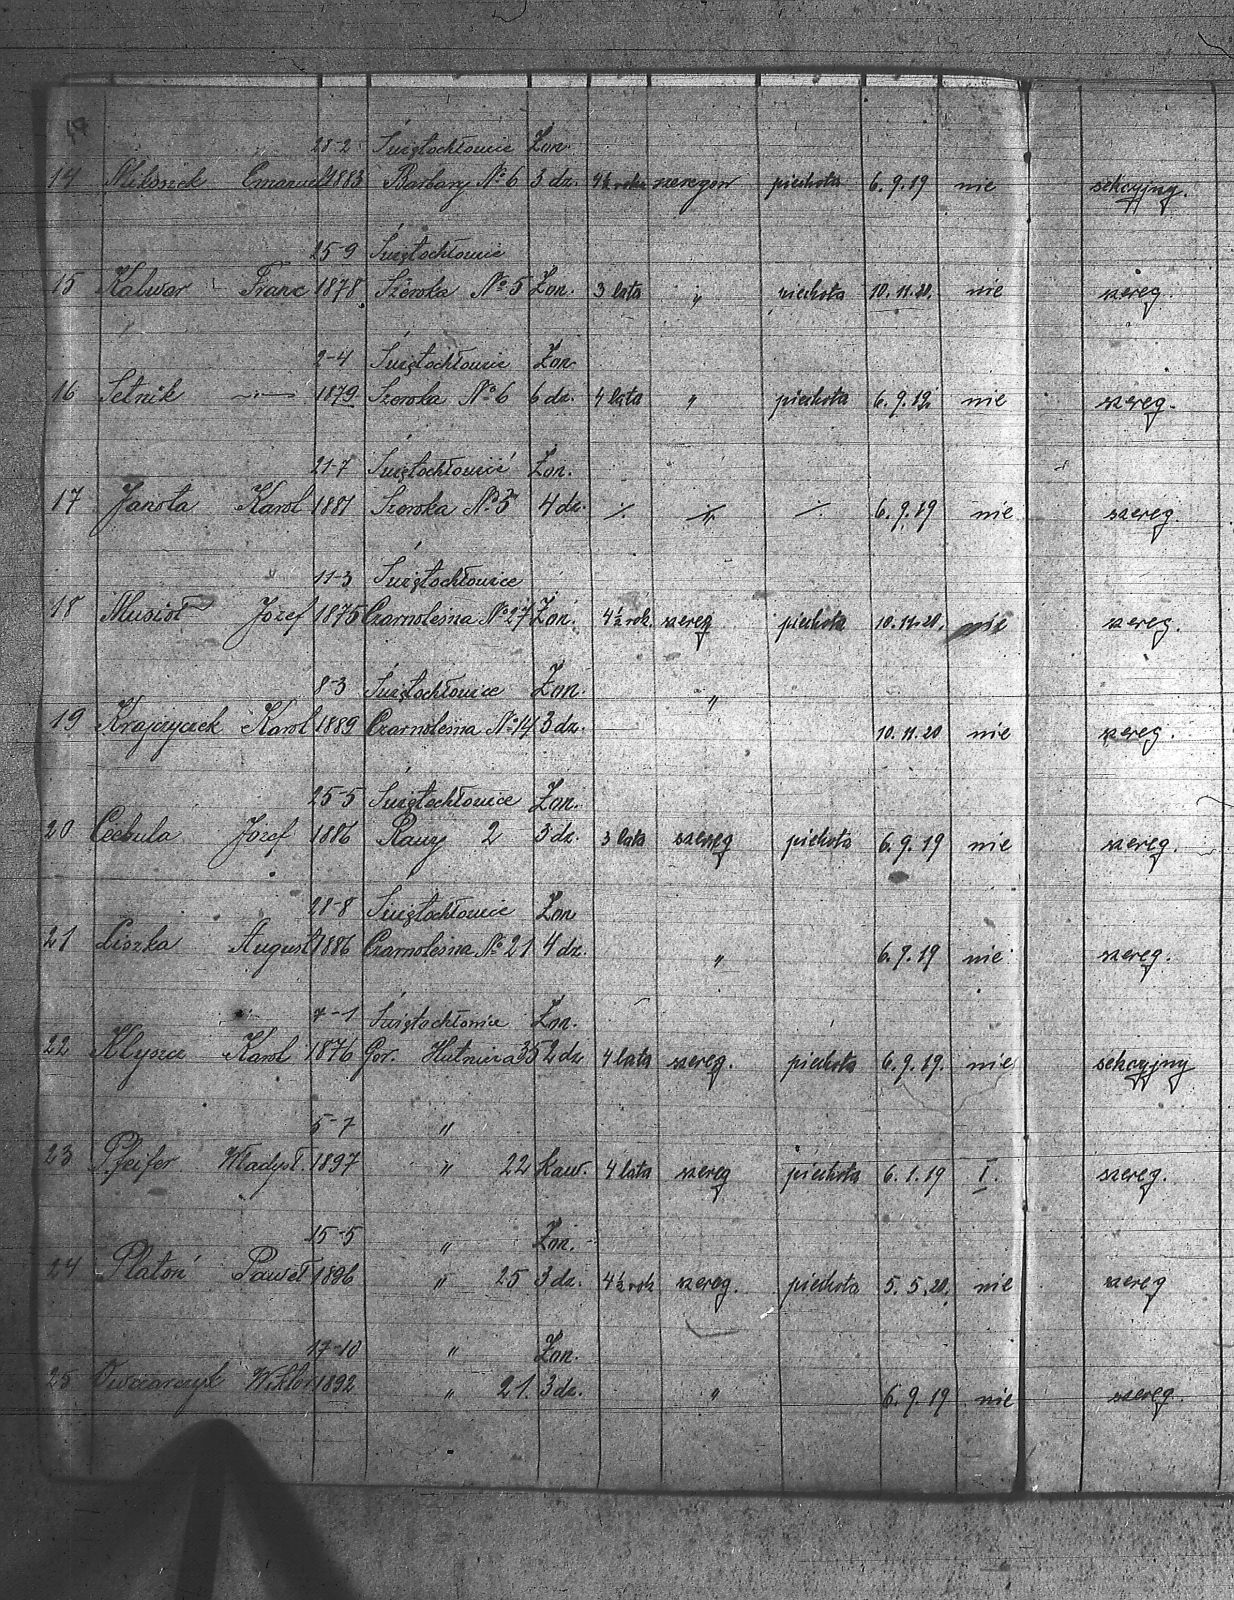 28-2 Świętochłowice Żon.
14 Emanuel 1883 Barbary № 6 3 dz. 4½ roku szeregow piechota 6.9.19 nie sekcyjny.
25-9 Świętochłowice
15 Kalwar Franc 1878 Szeroka № 5 Żon. 3 lata " piechota 10.11.20. nie szereg.
2-4 Świętochłowice Żon.
16 Setnik —"— 1879 Szeroka № 6 6 dz. 4 lata " piechota 6.9.19. nie szereg.
21-7 Świętochłowice Żon.
17 Janota Karol 1881 Szeroka № 5 4 dz. 6.9.19 nie szereg.
11-3 Świętochłowice
18 Musioł Józef 1875 Czarnoleśna № 27 Żon. 4½ rok. szereg piechota 10.11.20. nie szereg.
8-3 Świętochłowice Żon. "
19 Krajczyczek Karol 1889 Czarnoleśna № 14 3 dz. 10.11.20 nie szereg.
25-5 Świętochłowice Żon.
20 Cebula Józef 1886 2 3 dz. 3 lata szereg piechota 6.9.19 nie szereg.
28-8 Świętochłowice Żon
21 Liszka August 1886 Czarnoleśna № 21 4 dz. " 6.9.19 nie szereg.
7-1 Świętochłowice Żon.
22 Klyszcz Karol 1876 Gor. Hutnicza 35 2 dz. 4 lata szereg. piechota 6.9.19. nie sekcyjny
5-7 "
23 Pfeifer Władysł. 1897 " 22 Kaw. 4 lata szereg piechota 6.1.19 I. szereg.
15-5 " Żon.
24 Platoń Paweł 1896 " 25 3 dz. 4½ rok szereg. piechota 5.5.20. nie szereg
17-10 " Żon.
25 Owczarczyk Wiktor 1892 " 21. 3 dz. " 6.9.19 nie szereg.